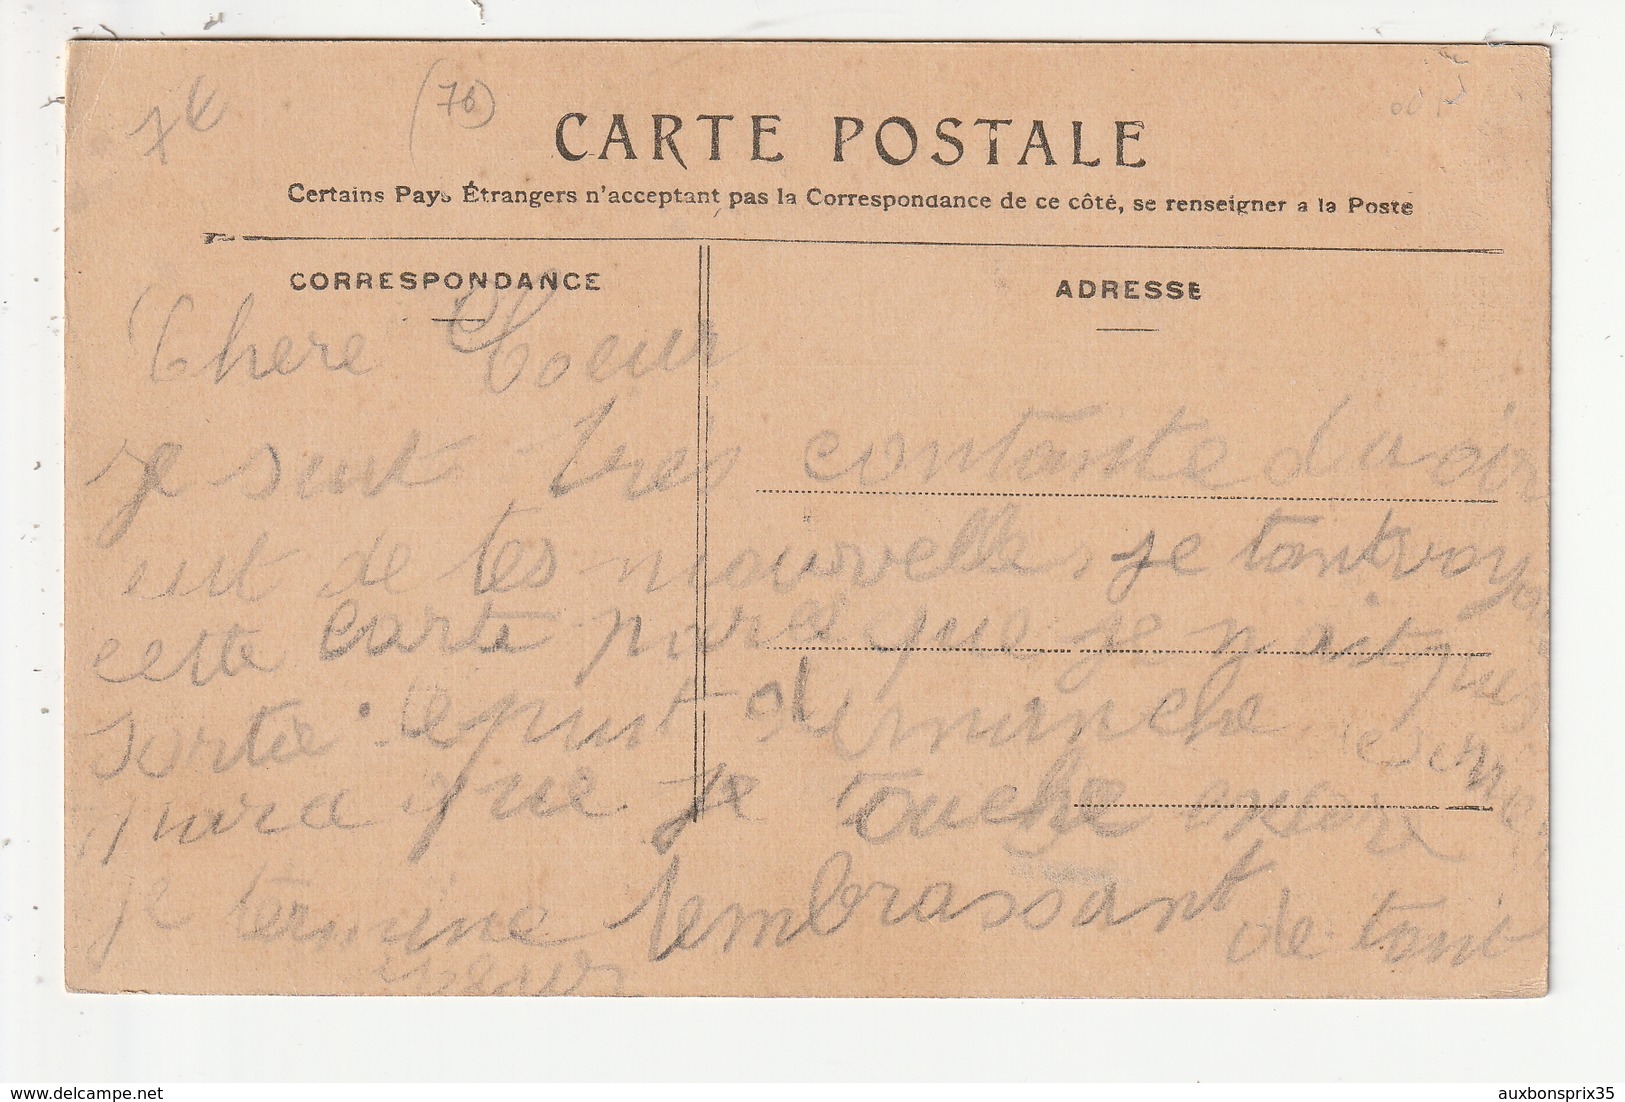 7€
(76)
CARTE POSTALE
Certains Pays Étrangers n'acceptant pas la Correspondance de ce côté, se renseigner a la Poste
CORRESPONDANCE
ADRESSE
Chere Soeur
je suit tres contante davoir
eut de tes nouvelle, je tantvoy
cette carte parce que je nait pas
sortie depuit dimanche
que je touche encore
je termine tembrassant de tout
cœur
delcampe.net
auxbonsprix35